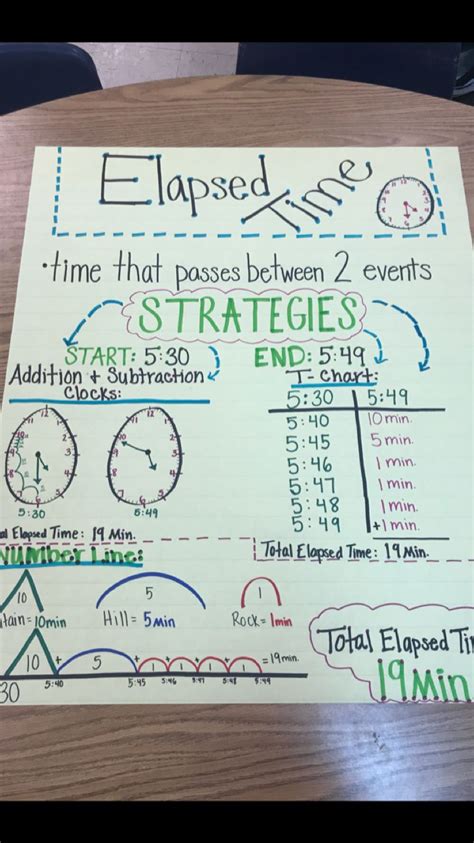 Elapsed Time
•time that passes between 2 events
STRATEGIES
START: 5:30
END: 5:49
Addition + Subtraction
Clocks:
5:30
5:49
al Elapsed Time: 19 Min.
T-Chart:
5:30 5:49
5:40 10 min.
5:45 5 min.
5:46 1 min.
5:47 1 min.
5:48 1 min.
5:49 +1 min.
Total Elapsed Time: 19 Min.
Number Line:
10
5
1
tain = 10min
Hill = 5 Min
Rock = 1min
10 + 5 + 1 + 1 + 1 + 1 = 19 min.
30 5:40 5:45 5:46 5:47 5:48 5:49
Total Elapsed Ti
19 Min